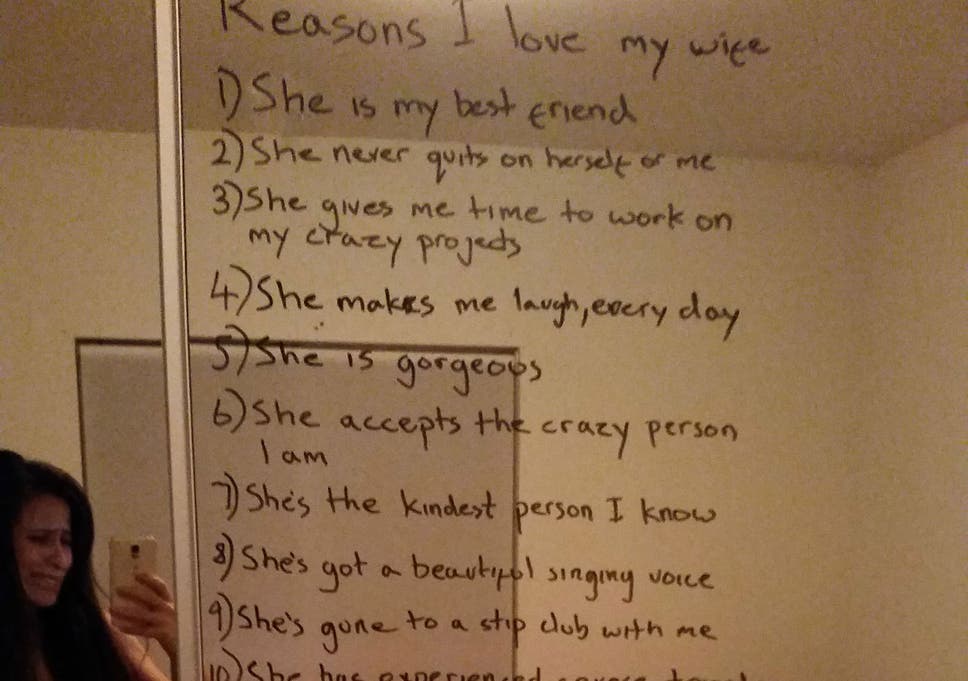 Reasons I love my wife
1) She is my best friend
2) She never quits on herself or me
3) She gives me time to work on
my crazy projects
4) She makes me laugh, every day
5) She is gorgeous
6) She accepts the crazy person
I am
7) She's the kindest person I know
8) She's got a beautiful singing voice
9) She's gone to a stip club with me
10) She has experienced